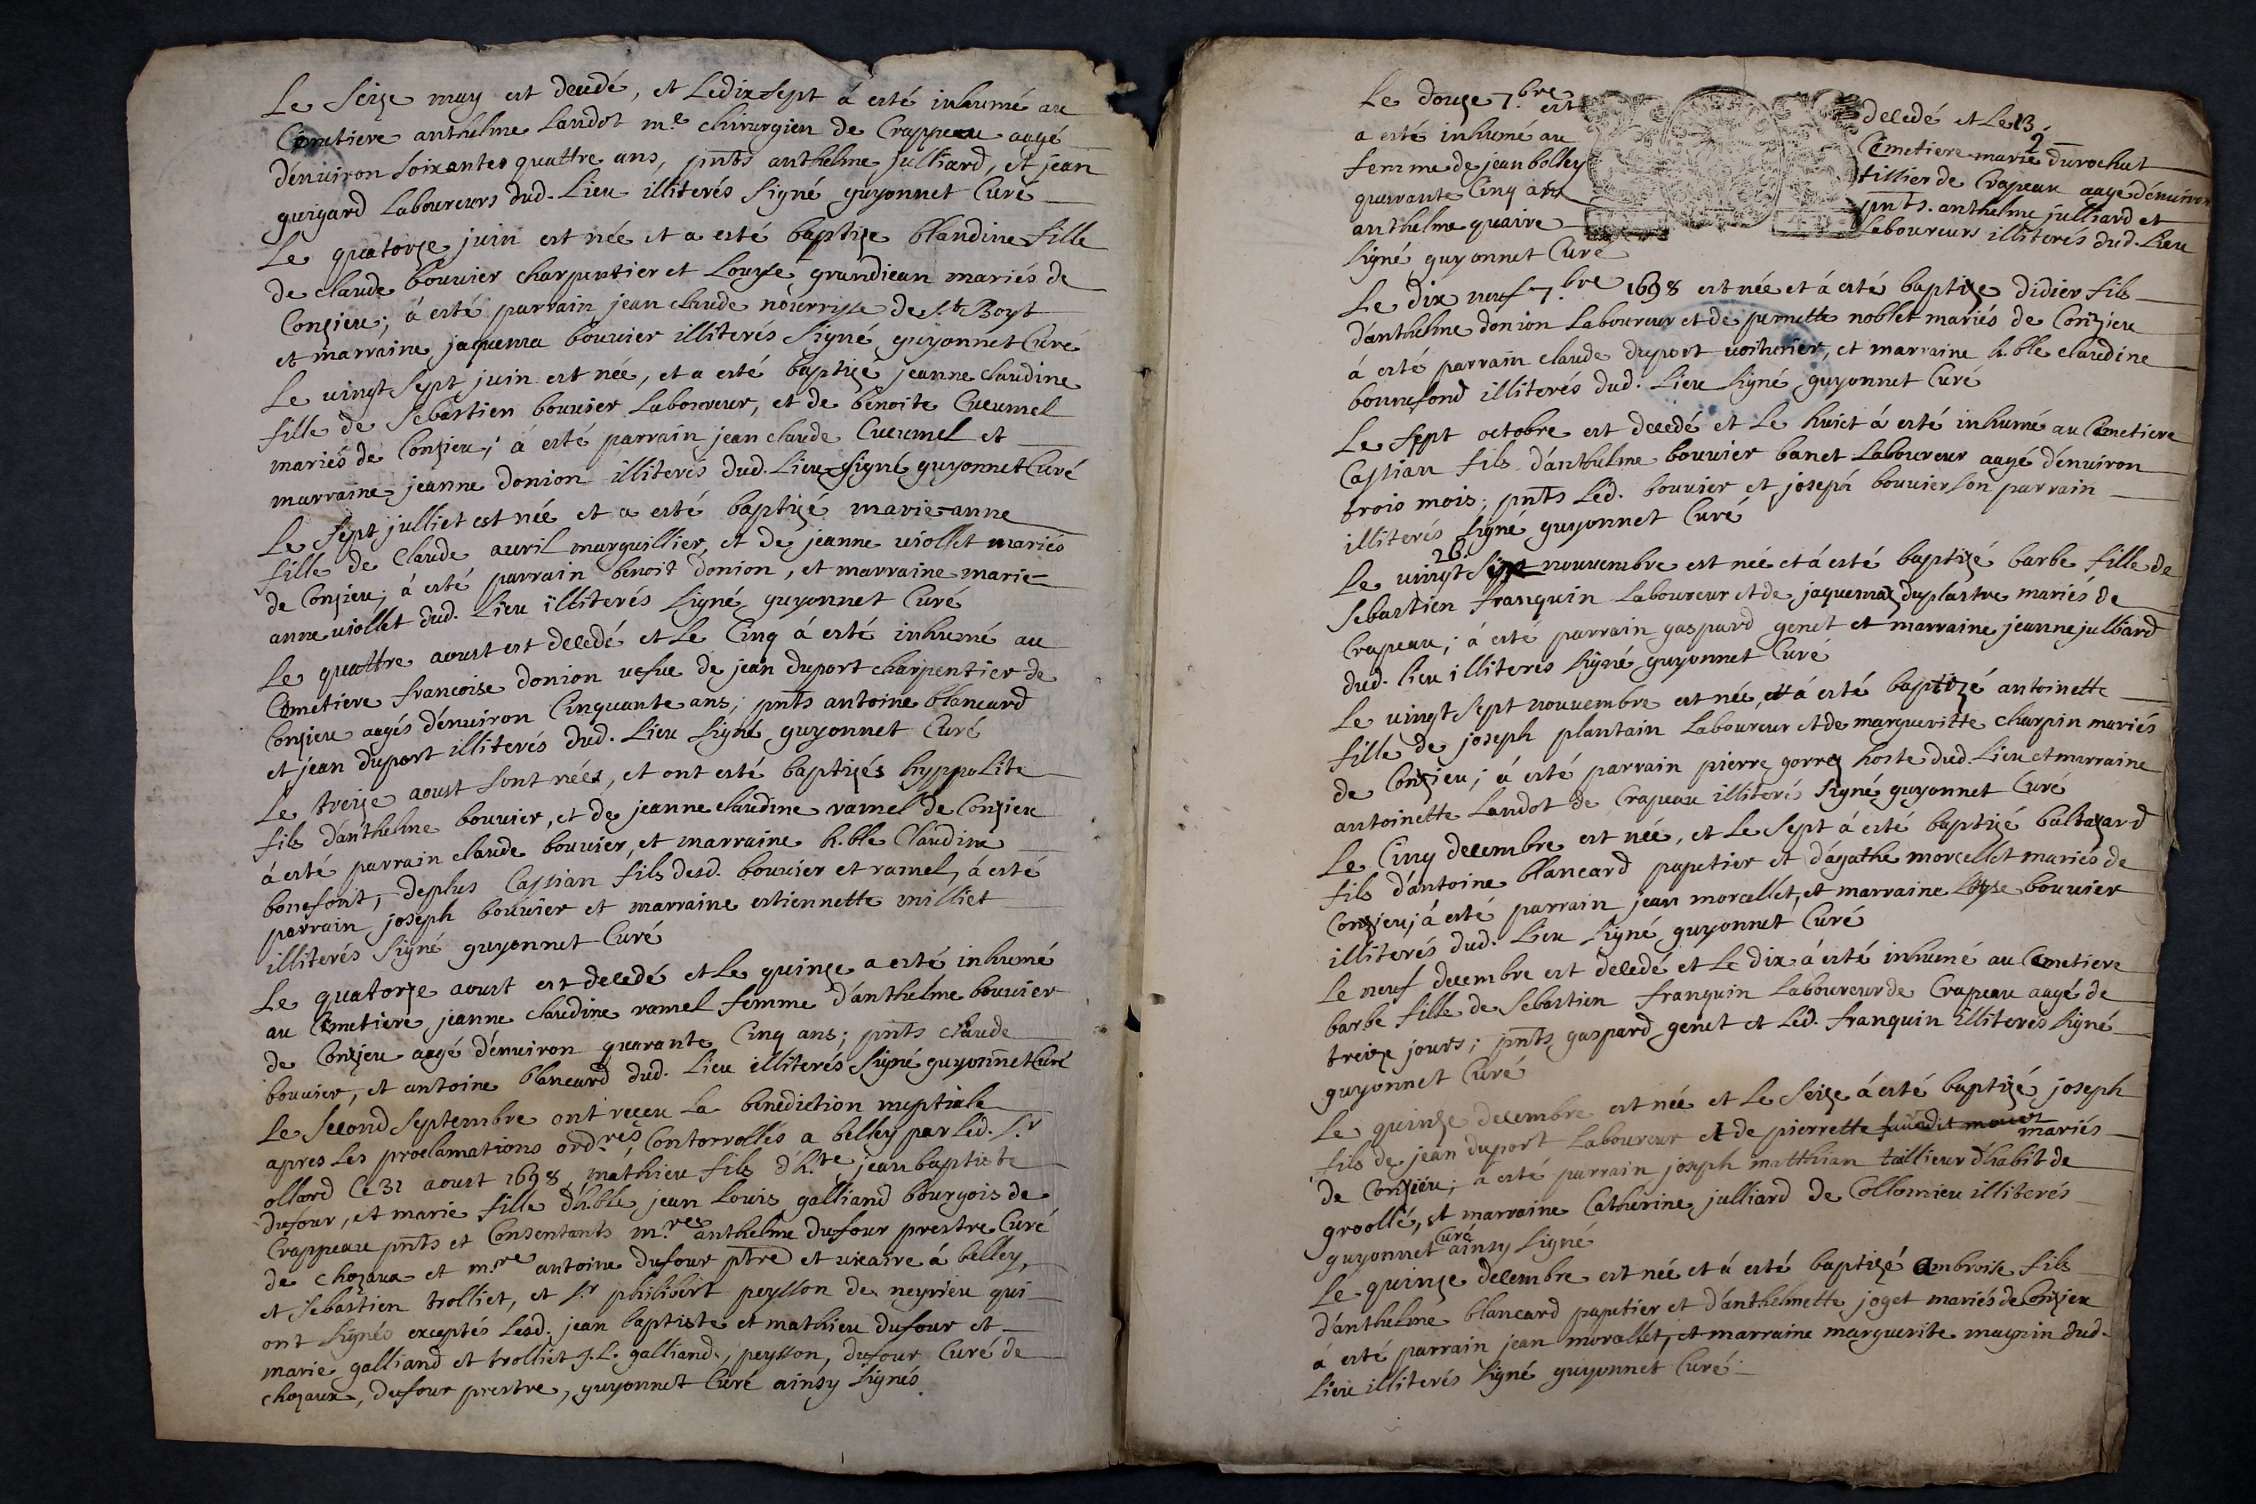 Le seize may est decedé, et Le dix sept á esté inhumé au
Cemetiere anthelme Landot m.e chirurgien de Crappeau aagé
d'enuiron soixantes quattre ans, pnts anthelme Julliard, et jean
guigard Laboureurs dud. Lieu illiterés signé guyonnet Curé
Le quatorze juin est née et a esté baptize blandine fille
de claude bouuier charpentier et Louyse grandiean mariés de
Conzieu; á esté parrain jean claude nourrisse de S.t Boyt
et marraine jaquema bouuier illiterés signé guyonnet Curé
Le uingt sept juin est née, et a esté baptizé jeanne claudine
fille de Sebastien bouuier Laboureur, et de benoite Cueumel
mariés de Conzieu; á esté parrain jean claude Cueumel et
marraine jeanne donion illiterés dud. Lieu signé guyonnet Curé
Le sept julliet est née et a esté baptizé marie anne
fille de Claude auril marguillier, et de jeanne uiollet mariés
de Conzieu; á esté parrain benoit donion, et marraine marie
anne uiollet dud. Lieu illiterés signé guyonnet Curé
Le quattre aoust est decedé et Le Cinq á esté inhumé au
Cemetiere francoise donion uefue de jean duport charpentier de
Conzieu aagés d'enuiron Cinquante ans; pnts antoine blancard
et jean duport illiterés dud. Lieu signé guyonnet Curé
Le treize aoust sont nées, et ont esté baptizés hyppolite
fils d'anthelme bouuier, et de jeanne claudine ramel de Conzieu
á esté parrain claude bouuier, et marraine h.ble Claudine
bonefont, deplus Cassian fils desd. bouuier et ramel, á esté
parrain joseph bouuier et marraine estiennette milliet
illiterés signé guyonnet Curé
Le quatorze aoust est decedé et Le quinze a esté inhumé
au Cemetiere jeanne claudine ramel femme d'anthelme bouuier
de Conzieu aagé d'enuiron quarante Cinq ans; pnts claude
bouuier, et antoine blancard dud. Lieu illiterés signé guyonnet Curé
Le second septembre ont receu La benediction nuptiale
apres Les proclamations ord.res, Contorrollés a belley par Led. s.r
ollard Ce 31 aoust 1698, mathieu fils d'h.te jean baptiste
dufour, et marie fille d'h.ble jean Louis galliand bourgois de
Crappeau pnts et Consentants m.res anthelme dufour prestre Curé
de chozaux et m.re antoine dufour ptre et uicaire á belley,
et sebastien trolliet, et s.r philibert peysson de neyrieu qui
ont signés exceptés Lesd. jean baptiste et mathieu dufour et
marie galliand et trolliet J.L. galliand, peysson, dufour Curé de
chozaux, dufour prestre, guyonnet Curé ainsy signés.
Le douze 7.bre est decedé et Le 13
a esté inhumé au Cemetiere marie durochat
femme de jean bolley tillier de Crapeau aage d'enuiron
quarante Cinq ans pnts. anthelme julliard et
anthelme quaire Laboureurs illiterés dud. Lieu
signé guyonnet Curé
Le dix neuf 7.bre 1698 est née et á esté baptize didier fils
d'anthelme donion Laboureur et de pernette noblet mariés de Conzieu
á esté parrain claude duport uoiturier, et marraine h.ble claudine
bonnefond illiterés dud. Lieu signé guyonnet Curé
Le sept octobre est decedé et Le huict á esté inhumé au Cemetiere
Cassian fils d'anthelme bouuier banet Laboureur aagé d'enuiron
trois mois; pnts Led. bouuier et joseph bouuier son parrain
illiterés signé guyonnet Curé
26.
Le uingt sept nouuembre est née et á esté baptizé barbe fille de
Sebastien franquin Laboureur et de jaquema duplastre mariés de
Crapeau; á esté parrain gaspard genet et marraine jeanne julliard
dud. lieu illiterés signé guyonnet Curé
Le uingt sept nouuembre est née, et á esté baptizé antoinette
fille de joseph plantain Laboureur et de margueritte charpin mariés
de Conzieu; á esté parrain pierre gorre hoste dud. Lieu et marraine
antoinette Landot de Crapeau illiteré signé guyonnet Curé
Le Cinq decembre est née, et Le sept á esté baptizé baltazard
fils d'antoine blancard papetier et d'agathe morcellet mariés de
Conzieu; á esté parrain jean morcellet, et marraine Loyse bouuier
illiterés dud. Lieu signé guyonnet Curé
Le neuf decembre est decedé et Le dix á esté inhumé au Cemetiere
barbe fille de Sebastien franquin Laboureur de Crapeau aagé de
treize jours; pnts gaspard genet et Led. franquin illiterés signé
guyonnet Curé
Le quinze decembre est née et Le seize á esté baptizé joseph
fils de jean duport Laboureur et de pierrette mariés
de Conzieu; á esté parrain joseph matthian taillieur d'habit de
groollé, et marraine Catherine julliard de Collomieu illiterés
guyonnet Curé ainsy signé
Le quinze decembre est née et á esté baptizé ambroise fils
d'anthelme blancard papetier et d'anthelmette joget mariés de Conzieu
á esté parrain jean morallet, et marraine marguerite magnin dud.
Lieu illiterés signé guyonnet Curé